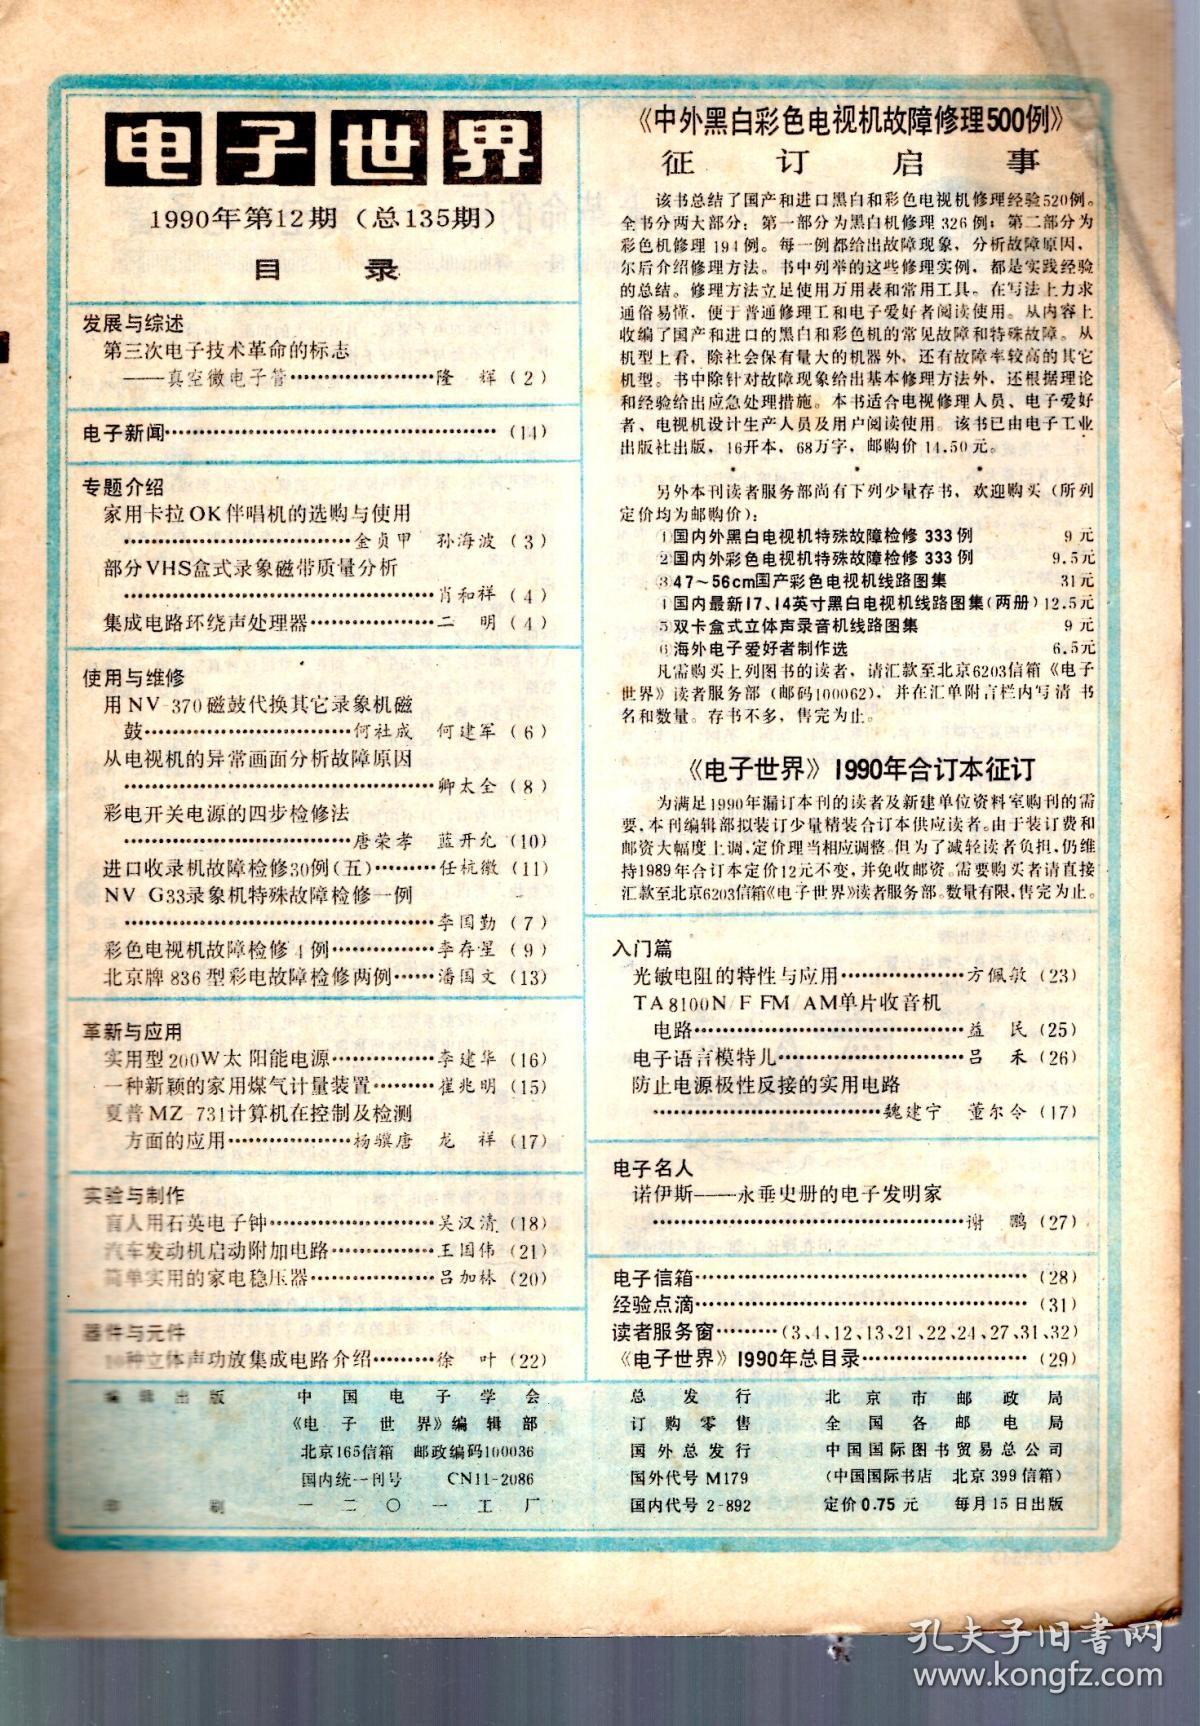 电子世界
1990年第12期（总135期）
目 录
发展与综述
第三次电子技术革命的标志
——真空微电子管…………………隆 辉（2）
电子新闻……………………………………（14）
专题介绍
家用卡拉OK伴唱机的选购与使用
…………………………金贞甲 孙海波（3）
部分VHS盒式录象磁带质量分析
…………………………………肖和祥（4）
集成电路环绕声处理器………………二 明（4）
使用与维修
用NV-370磁鼓代换其它录象机磁
鼓………………………何社成 何建军（6）
从电视机的异常画面分析故障原因
…………………………………卿太全（8）
彩电开关电源的四步检修法
…………………………唐荣孝 蓝开允（10）
进口收录机故障检修30例（五）………任杭徽（11）
NV-G33录象机特殊故障检修一例
…………………………………李国勤（7）
彩色电视机故障检修4例……………李存星（9）
北京牌836型彩电故障检修两例……潘国文（13）
革新与应用
实用型200W太阳能电源……………李建华（16）
一种新颖的家用煤气计量装置………崔兆明（15）
夏普MZ-731计算机在控制及检测
方面的应用………………杨骥唐 龙 祥（17）
实验与制作
盲人用石英电子钟……………………吴汉清（18）
汽车发动机启动附加电路……………王国伟（21）
简单实用的家电稳压器………………吕加林（20）
器件与元件
10种立体声功放集成电路介绍………徐 叶（22）
编辑出版 中国电子学会
《电子世界》编辑部
北京165信箱 邮政编码100036
国内统一刊号 CN11-2086
印 刷 一二〇一工厂
《中外黑白彩色电视机故障修理500例》
征 订 启 事
该书总结了国产和进口黑白和彩色电视机修理经验520例。
全书分两大部分：第一部分为黑白机修理326例；第二部分为
彩色机修理194例。每一例都给出故障现象，分析故障原因，
尔后介绍修理方法。书中列举的这些修理实例，都是实践经验
的总结。修理方法立足使用万用表和常用工具。在写法上力求
通俗易懂，便于普通修理工和电子爱好者阅读使用。从内容上
收编了国产和进口的黑白和彩色机的常见故障和特殊故障。从
机型上看，除社会保有量大的机器外，还有故障率较高的其它
机型。书中除针对故障现象给出基本修理方法外，还根据理论
和经验给出应急处理措施。本书适合电视修理人员、电子爱好
者、电视机设计生产人员及用户阅读使用。该书已由电子工业
出版社出版，16开本，68万字，邮购价14.50元。
另外本刊读者服务部尚有下列少量存书，欢迎购买（所列
定价均为邮购价）：
①国内外黑白电视机特殊故障检修333例 9元
②国内外彩色电视机特殊故障检修333例 9.5元
③47～56cm国产彩色电视机线路图集 31元
④国内最新17、14英寸黑白电视机线路图集（两册） 12.5元
⑤双卡盒式立体声录音机线路图集 9元
⑥海外电子爱好者制作选 6.5元
凡需购买上列图书的读者，请汇款至北京6203信箱《电子
世界》读者服务部（邮码100062），并在汇单附言栏内写清书
名和数量。存书不多，售完为止。
《电子世界》1990年合订本征订
为满足1990年漏订本刊的读者及新建单位资料室购刊的需
要，本刊编辑部拟装订少量精装合订本供应读者。由于装订费和
邮资大幅度上调，定价理当相应调整。但为了减轻读者负担，仍维
持1989年合订本定价12元不变，并免收邮资。需要购买者请直接
汇款至北京6203信箱《电子世界》读者服务部。数量有限，售完为止。
入门篇
光敏电阻的特性与应用……………方佩敏（23）
TA8100N/F FM/AM单片收音机
电路……………………………………益 民（25）
电子语言模特儿………………………吕 禾（26）
防止电源极性反接的实用电路
…………………………魏建宁 董尔令（17）
电子名人
诺伊斯——永垂史册的电子发明家
……………………………………谢 鹏（27）
电子信箱……………………………………（28）
经验点滴……………………………………（31）
读者服务窗………（3、4、12、13、21、22、24、27、31、32）
《电子世界》1990年总目录…………………（29）
总 发 行 北京市邮政局
订购零售 全国各邮电局
国外总发行 中国国际图书贸易总公司
国外代号 M179 （中国国际书店 北京399信箱）
国内代号 2-892 定价0.75元 每月15日出版
孔夫子旧书网
www.kongfz.com